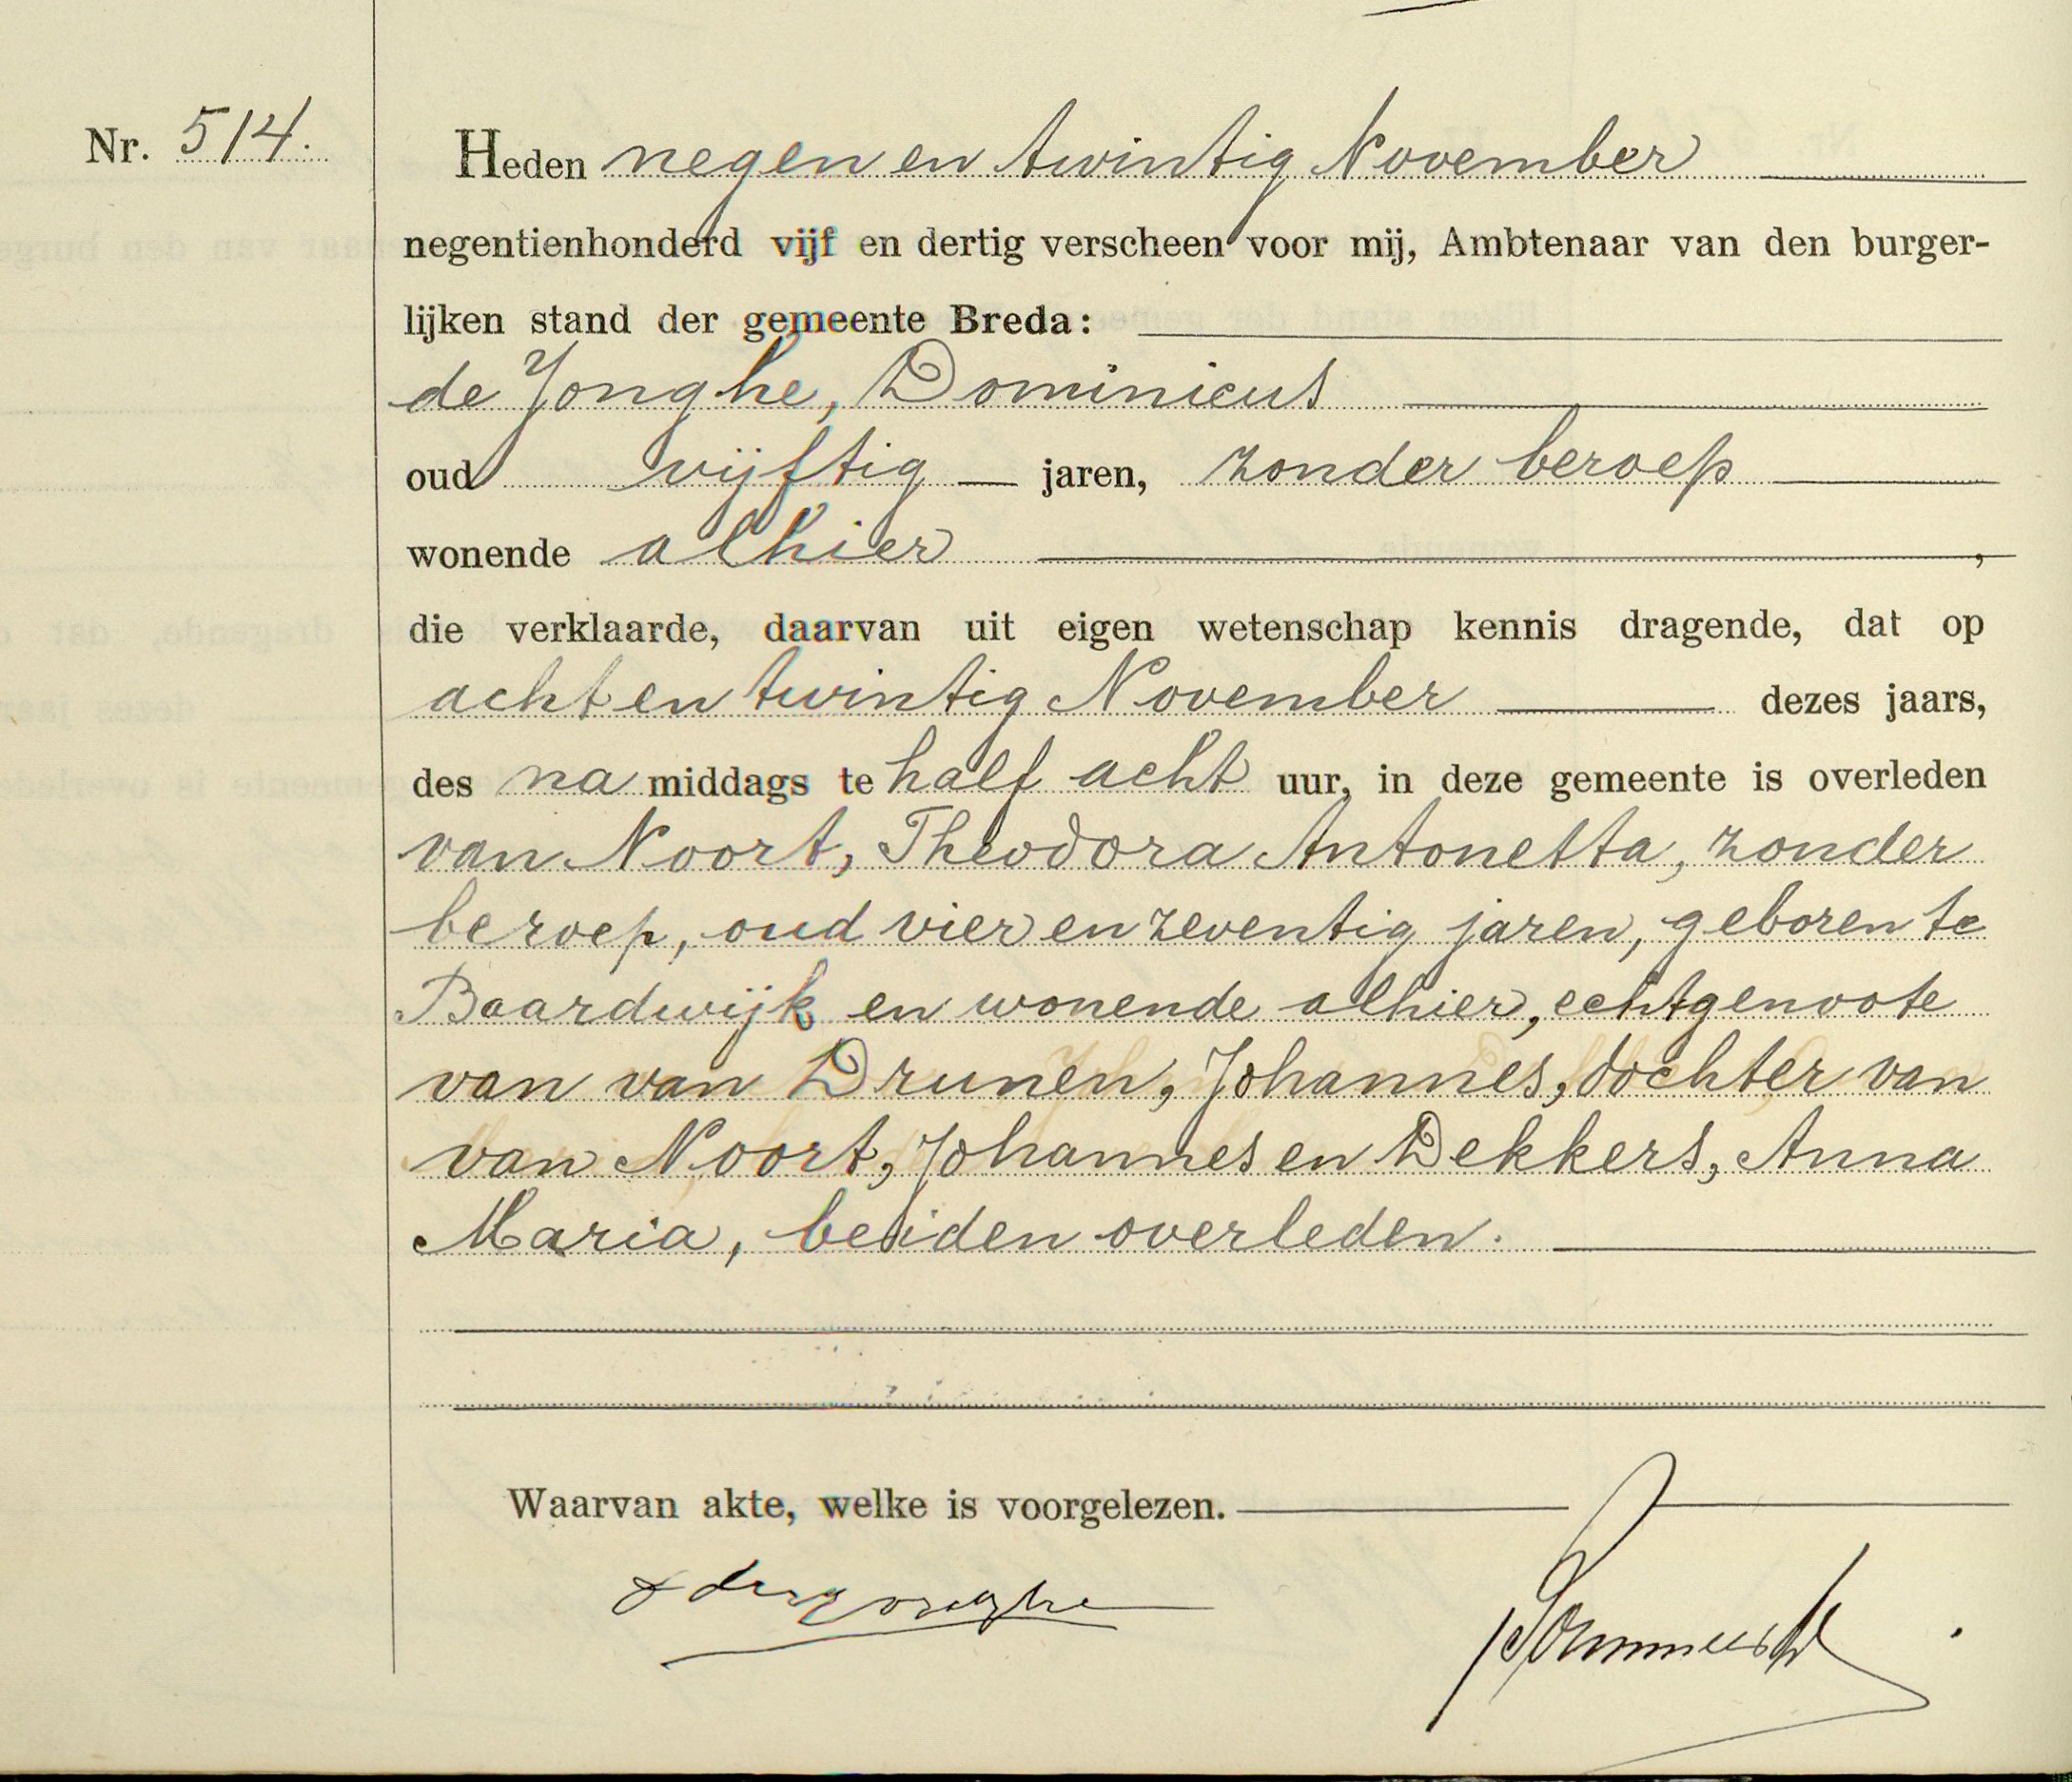 Nr. 514.
Heden negen en twintig November
negentienhonderd vijf en dertig verscheen voor mij, Ambtenaar van den burger-
lijken stand der gemeente Breda:
de Jonghe, Dominicus
oud vijftig jaren, zonder beroep
wonende alhier ,
die verklaarde, daarvan uit eigen wetenschap kennis dragende, dat op
acht en twintig November dezes jaars,
des na middags te half acht uur, in deze gemeente is overleden
van Noort, Theodora Antonetta, zonder
beroep, oud vier en zeventig jaren, geboren te
Baardwijk en wonende alhier, echtgenoote
van van Drunen, Johannes, dochter van
van Noort, Johannes en Dekkers, Anna
Maria, beiden overleden.
Waarvan akte, welke is voorgelezen.